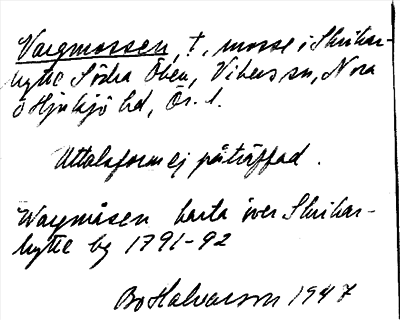 Vargmossen, t, mosse i Skrikar-
hytte Södra Öken, Vikers sn, Nora
o Hjulsjö bd, Ör. l.
Uttalsform ej påträffad.
Wargmåsen karta över Skrikar-
hytte by 1791-92
Bo Halvarson 1947